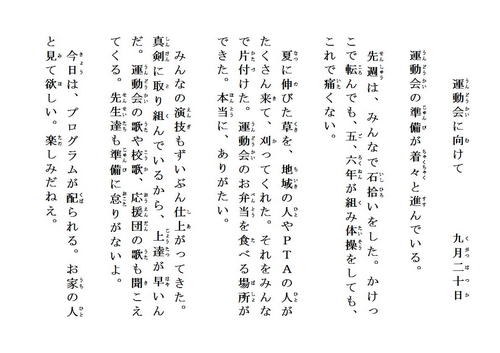 運動会に向けて　　　九月二十日
運動会の準備が着々と進んでいる。
先週は、みんなで石拾いをした。かけっ
こで転んでも、五、六年が組み体操をしても、
これで痛くない。
夏に伸びた草を、地域の人やＰＴＡの人が
たくさん来て、刈ってくれた。それをみんな
で片付けた。運動会のお弁当を食べる場所が
できた。本当に、ありがたい。
みんなの演技もずいぶん仕上がってきた。
真剣に取り組んでいるから、上達が早いん
だや。運動会の歌や校歌、応援団の歌も聞こえ
てくる。先生達も準備に怠りがないよ。
今日は、プログラムが配られる。お家の人
と見て欲しい。楽しみだねえ。